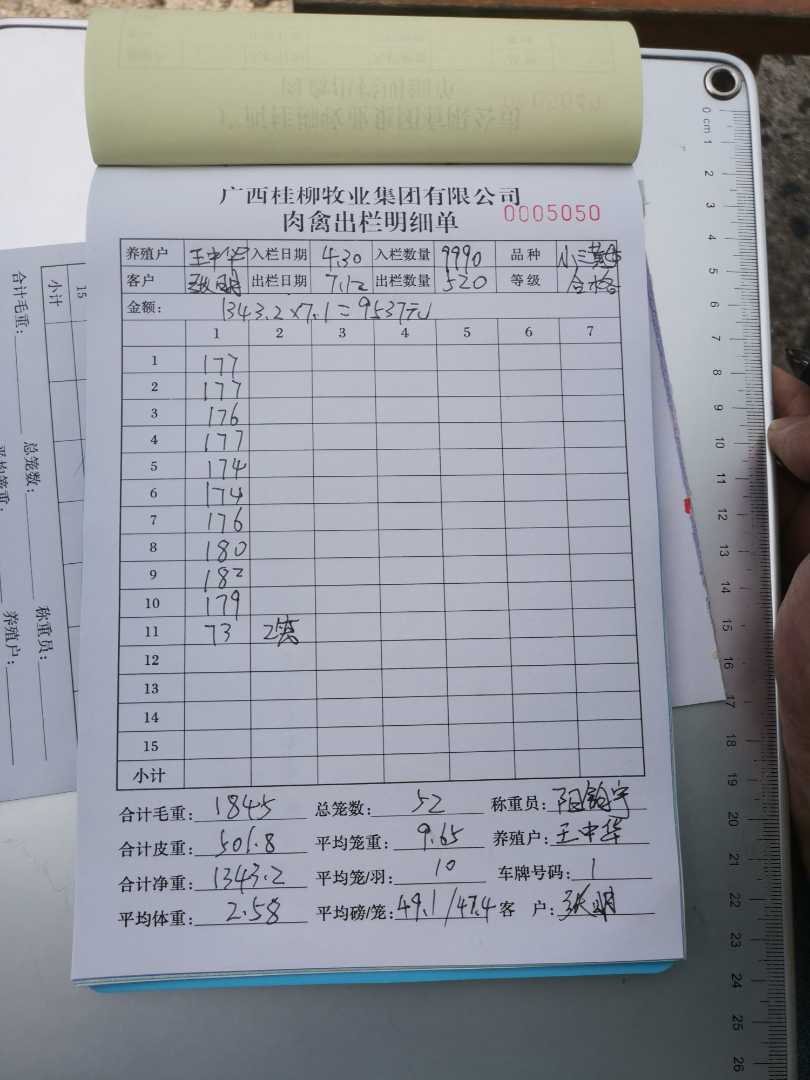 广西桂柳牧业集团有限公司
肉禽出栏明细单 0005050
养殖户 王中华 入栏日期 4.30 入栏数量 9990 品种
客户 张明 出栏日期 7.12 出栏数量 520 等级 合格
金额: 1343.2×7.1=9537元
1 2 3 4 5 6 7
1 177
2 177
3 176
4 177
5 174
6 174
7 176
8 180
9 182
10 179
11 73 2笼
12
13
14
15
小计
合计毛重: 1845 总笼数: 52 称重员:
合计皮重: 501.8 平均笼重: 9.65 养殖户: 王中华
合计净重: 1343.2 平均笼/羽: 10 车牌号码: 1
平均体重: 2.58 平均磅/笼: 49.1/47.4 客 户: 张明
15
小计
合计毛重:
总笼数:
称重员:
平均笼重:
养殖户:
0 cm 1 2 3 4 5 6 7 8 9 10 11 12 13 14 15 16 17 18 19 20 21 22 23 24 25 26